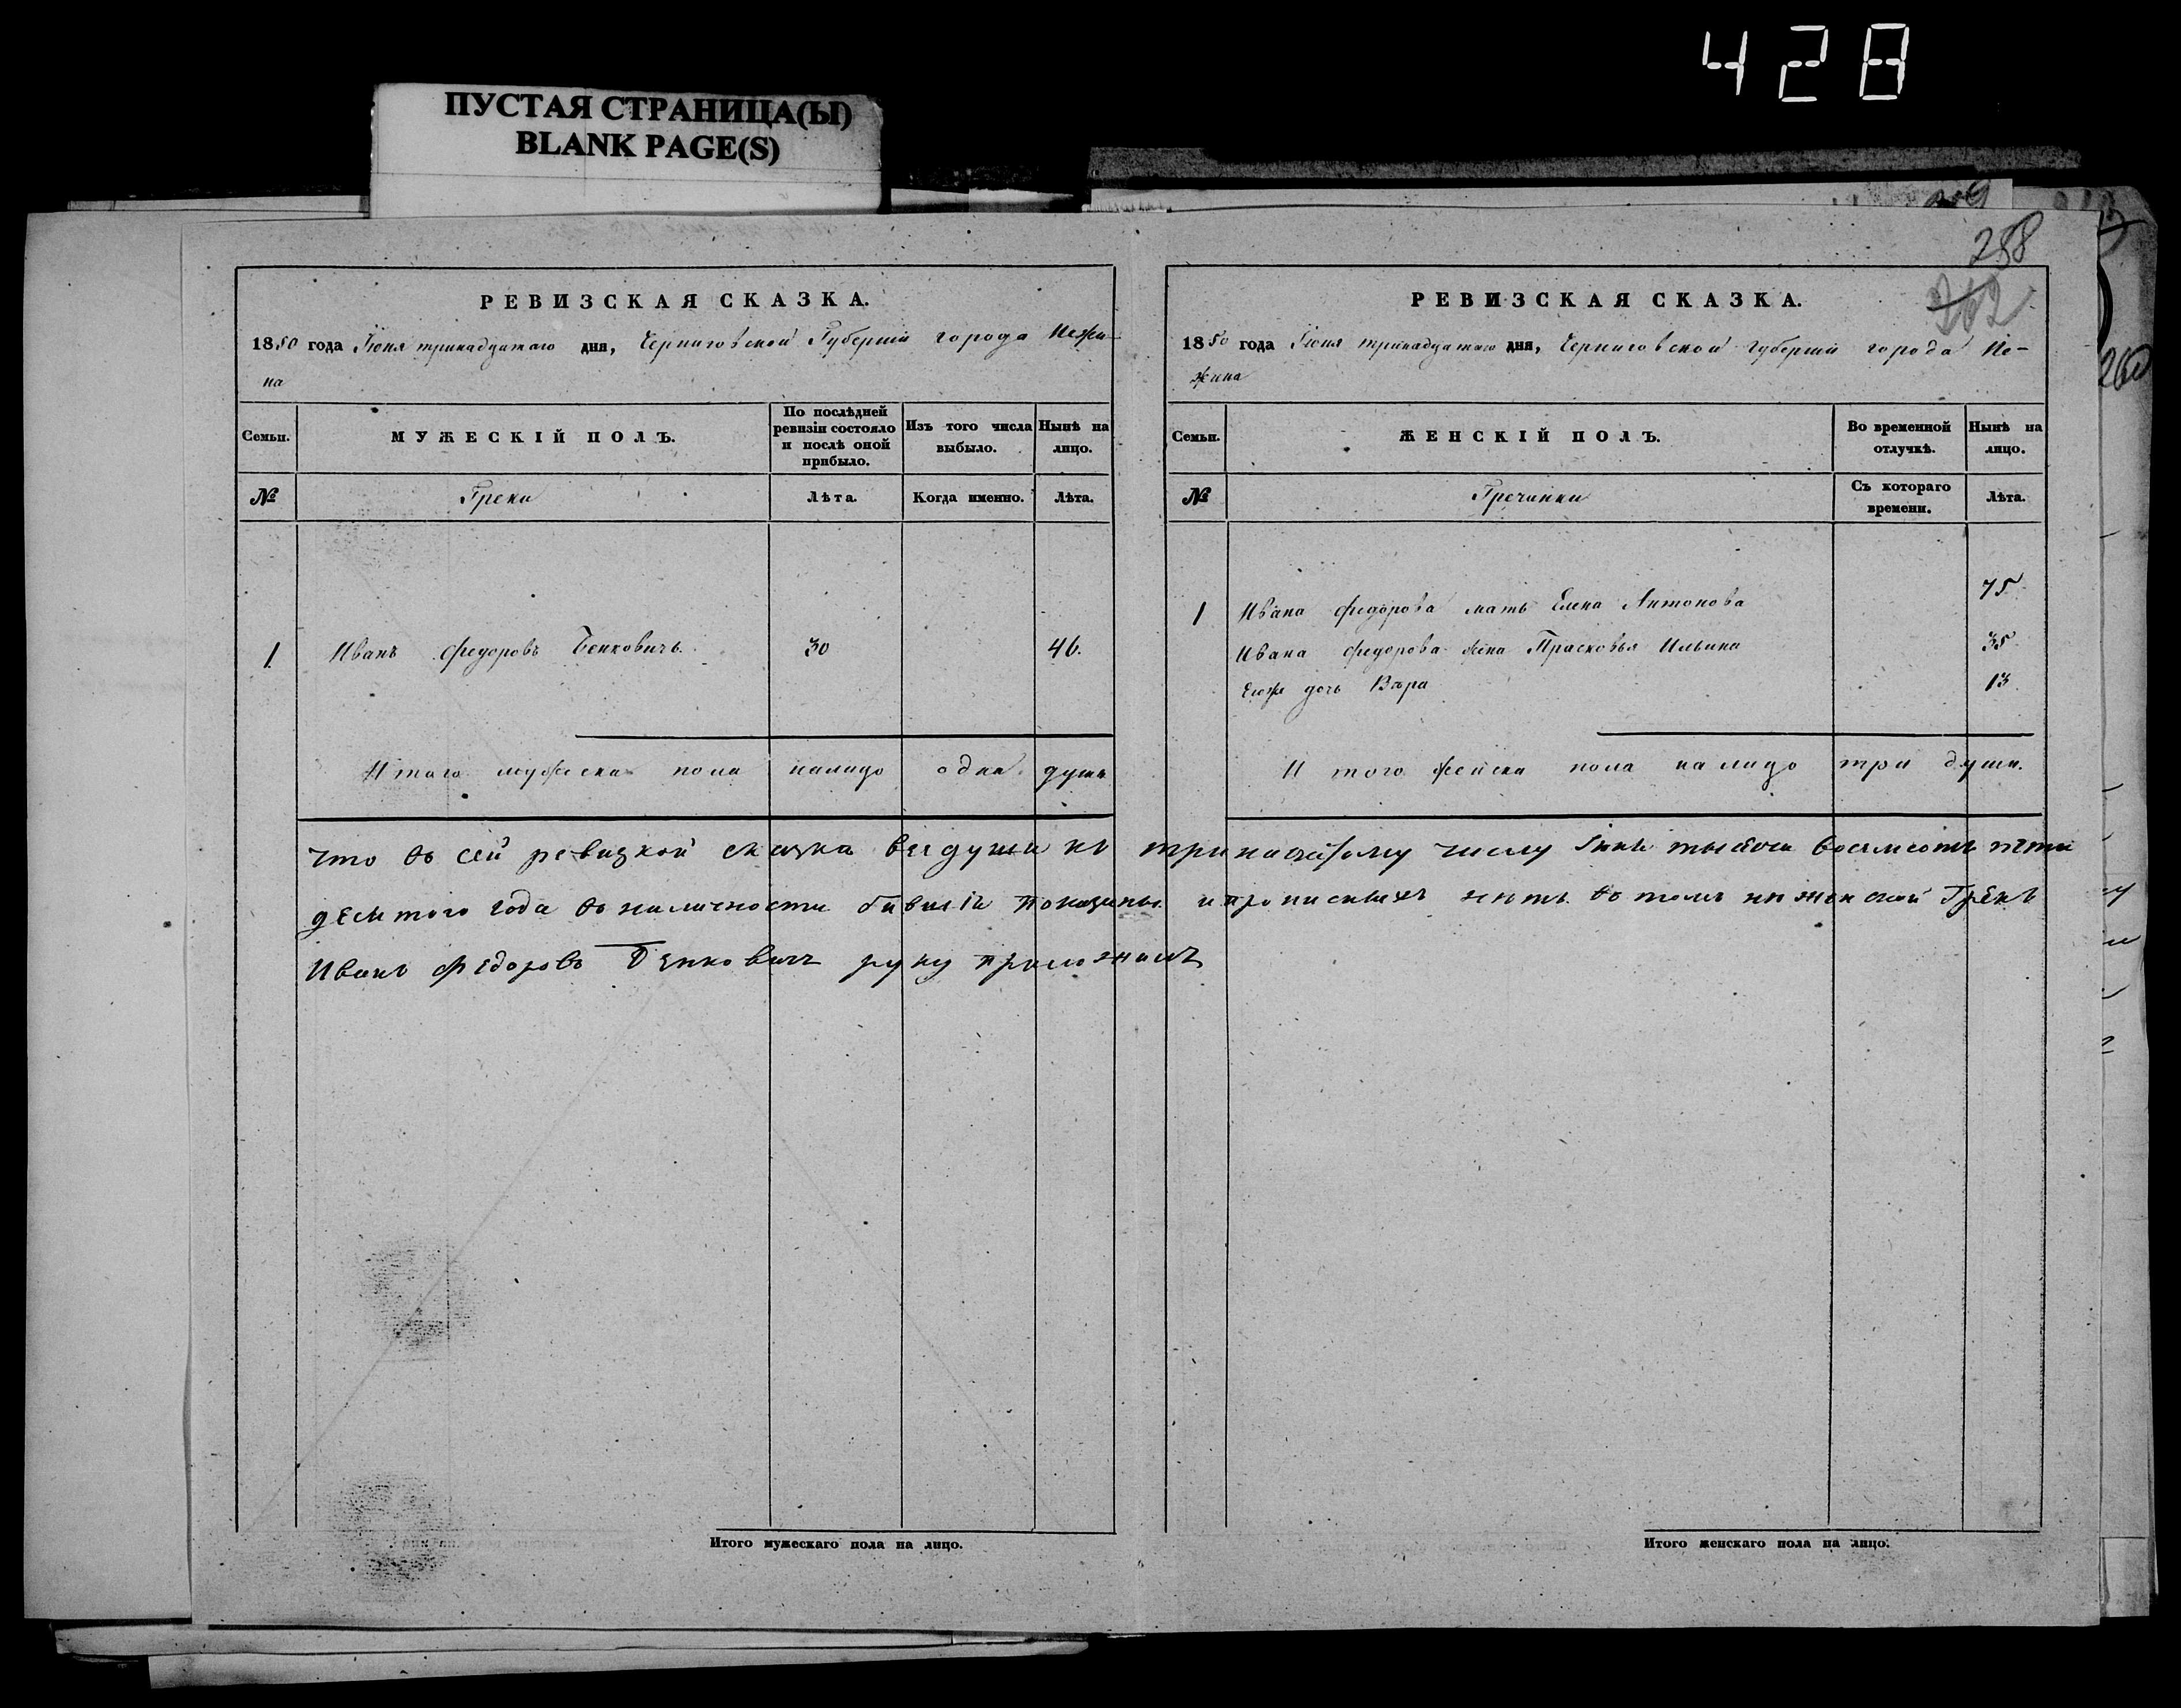 428
ПУСТАЯ СТРАНИЦА(Ы)
BLANK PAGE(S)
258
262
260
РЕВИЗСКАЯ СКАЗКА.
1850 года Іюня тринадцатаго дня, Черниговской Губерніи города Нежи-
на
Семьи.
МУЖЕСКІЙ ПОЛЪ.
По послѣдней ревизіи состояло и послѣ оной прибыло.
Изъ того числа выбыло.
Нынѣ на лицо.
№
Греки
Лѣта.
Когда именно.
Лѣта.
1 Иванъ Федоровъ Бенковичъ. 30 46.
Итого мужеска пола налицо одна душа
РЕВИЗСКАЯ СКАЗКА.
1850 года Іюня тринадцатаго дня, Черниговской Губерніи города Не-
жина
Семьи.
ЖЕНСКІЙ ПОЛЪ.
Во временной отлучкѣ.
Нынѣ на лицо.
№
Гречанки
Съ котораго времени.
Лѣта.
1 Ивана Федорова мать Елена Антонова 75
Ивана Федорова жена Прасковья Ильина 35
Ихъ дочь Вѣра 13
Итого женска пола налицо три души.
что въ сей ревизкой сказка все души къ тринацатому числу Іюня тысяча восемсотъ пяти
десятого года въ наличности бывшія показаны и прописныхъ нетъ въ томъ нежинской Грекъ
Иванъ Федоровъ Бенковичъ руку приложилъ
Итого мужескаго пола на лицо.
Итого женскаго пола на лицо.